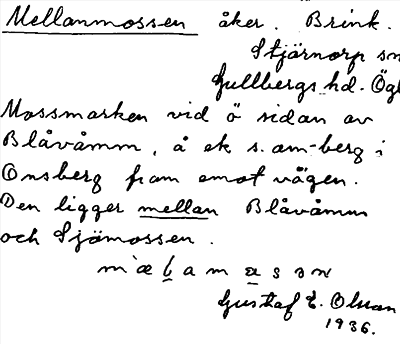 Mellanmossen åker. Brink.
Stjärnorp sn
Gullbergs hd. Ögl
Mossmarken vid ö sidan av
Blåvåmm, å ek s. om-berg i
Onsberg fram emot vägen.
Den ligger mellan Blåvåmm
och Sjömossen.
Gustaf E. Olsson
1936.